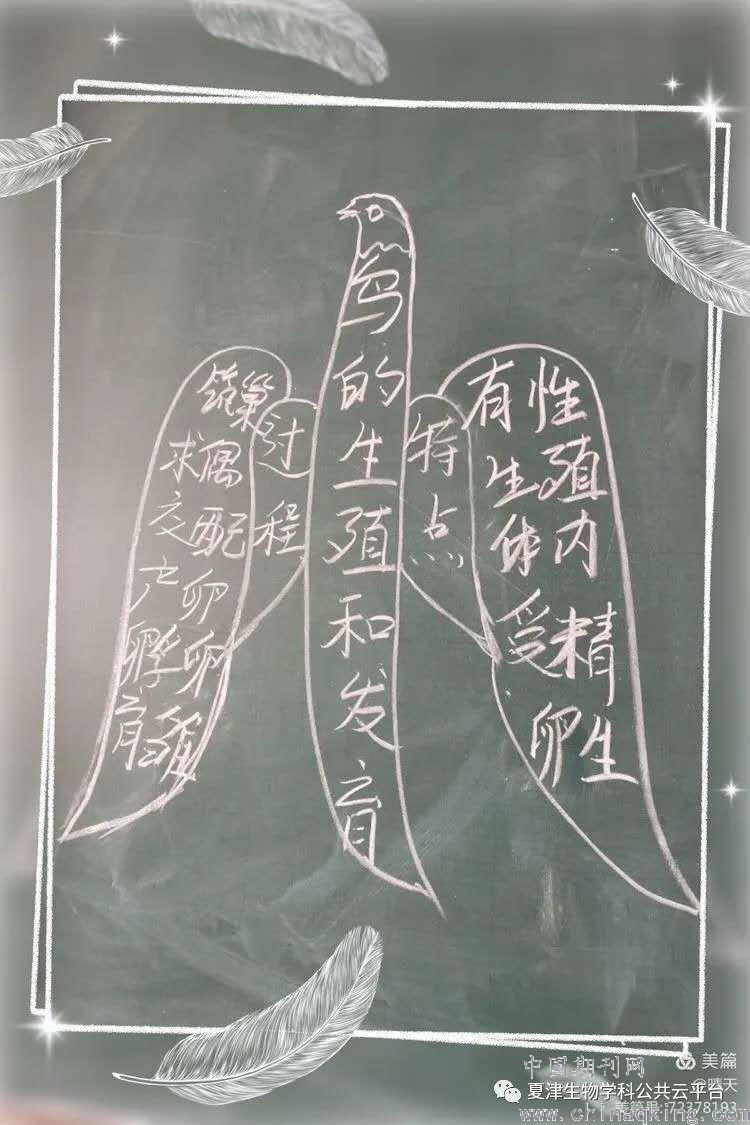 鸟的生殖和发育
过程
筑巢
求偶
交配
产卵
孵卵
育雏
特点
有性
生殖
体内
受精
卵生
中国期刊网
美篇
@晴天
夏津生物学科公共云平台
美篇号:72378193
www.chinaqking.com